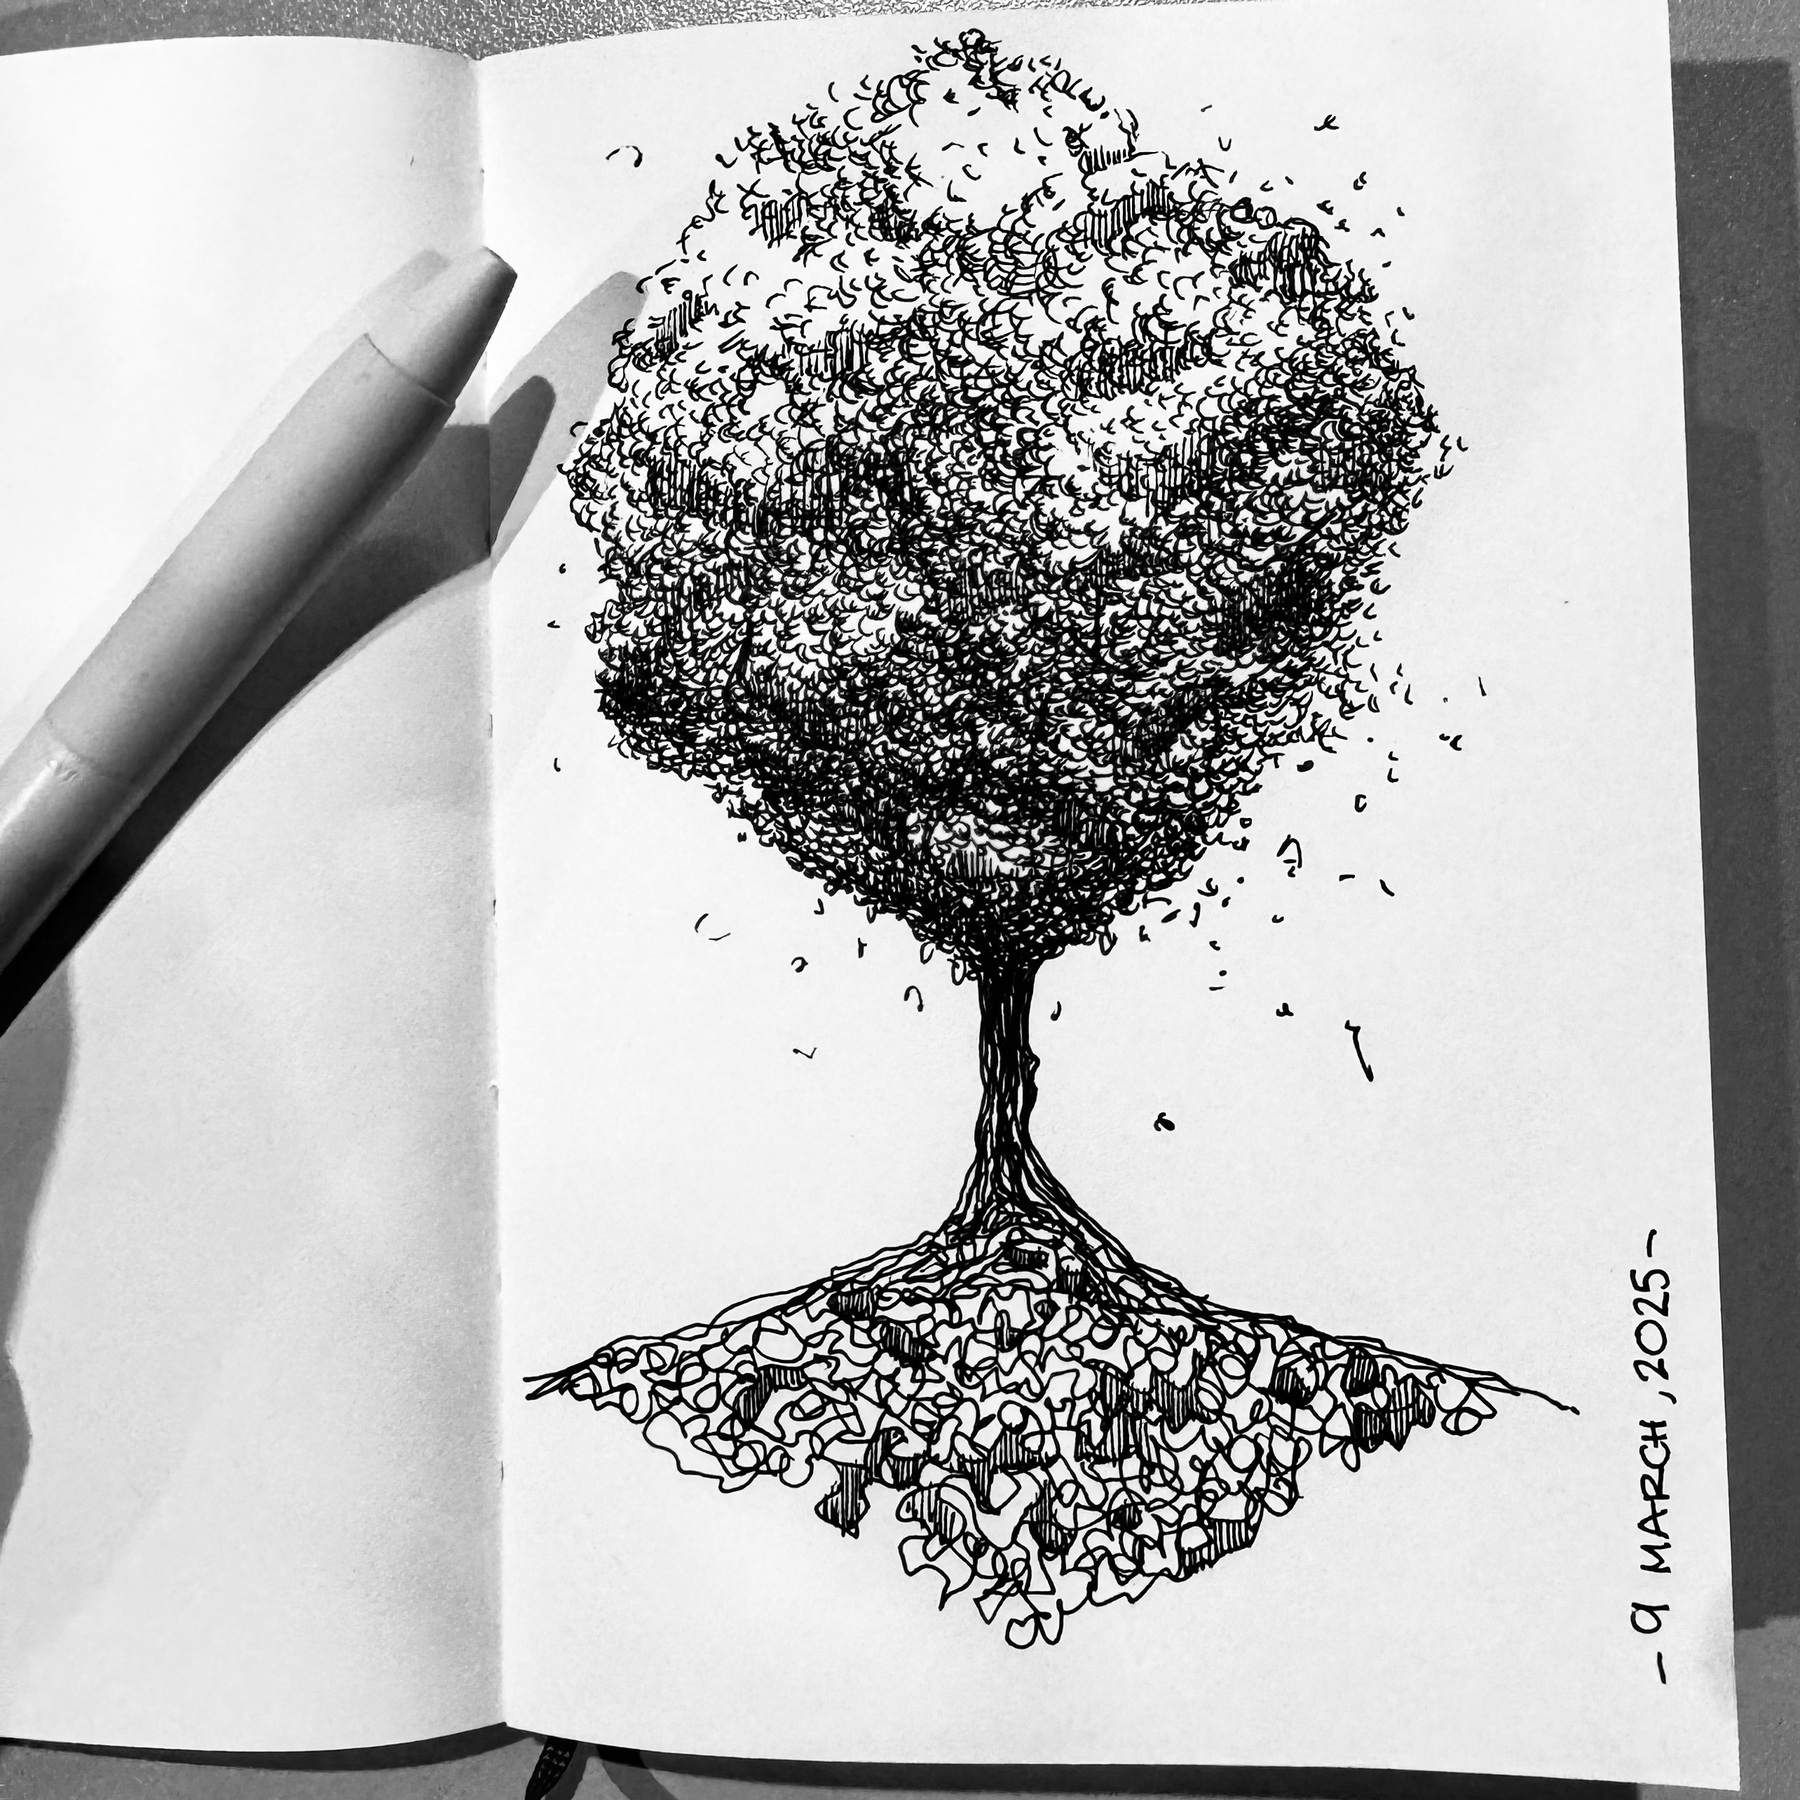 - 9 MARCH, 2025 -